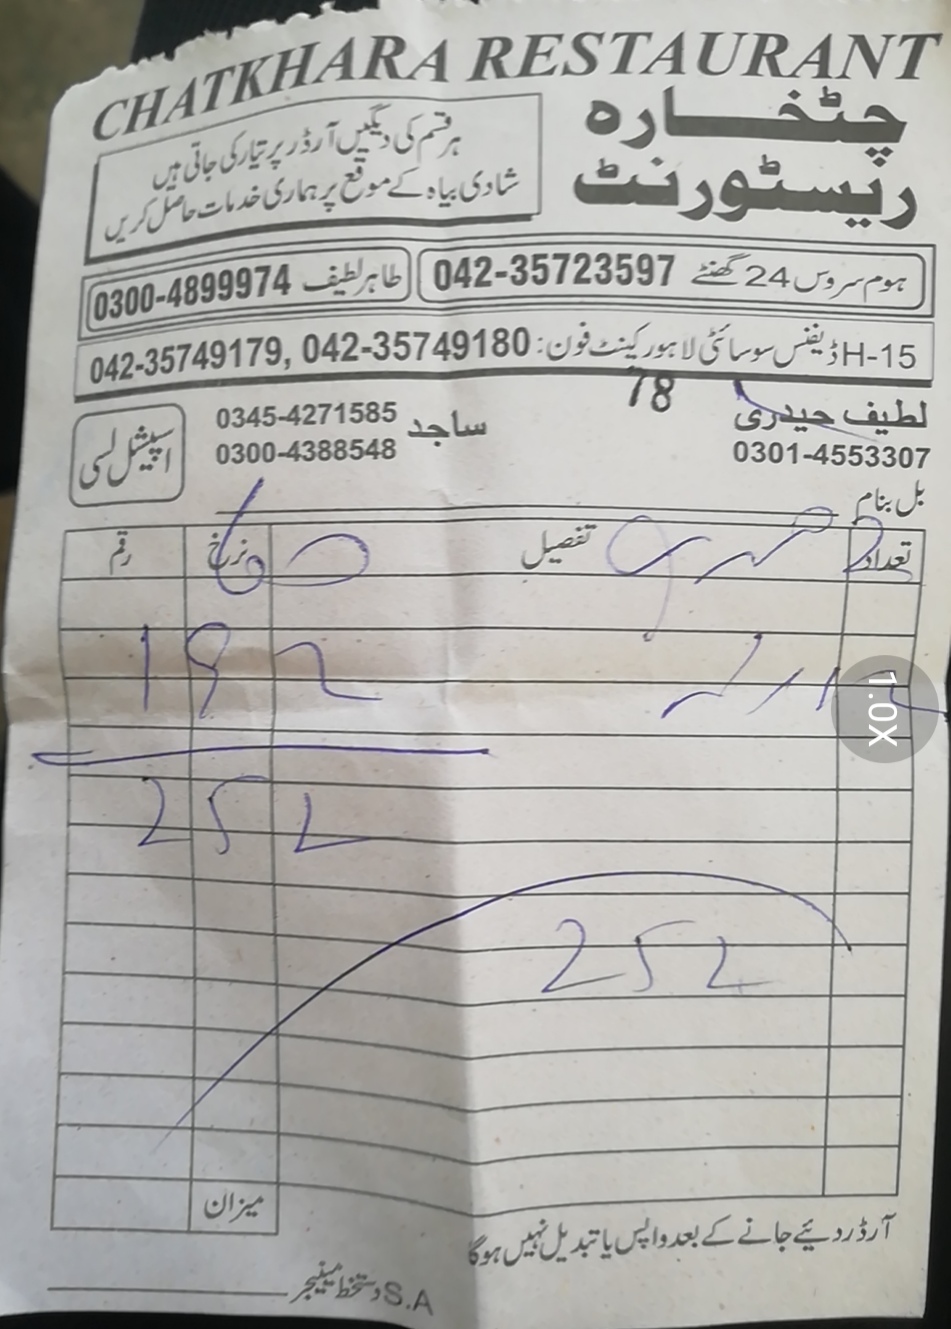 CHATKHARA RESTAURANT
چٹخارہ
ریسٹورنٹ
ہر قسم کی دیگیں آرڈر پر تیار کی جاتی ہیں
شادی بیاہ کے موقع پر ہماری خدمات حاصل کریں
ہوم سروس 24 گھنٹے 042-35723597
طاہر لطیف 0300-4899974
H-15 ڈیفنس سوسائٹی لاہور کینٹ فون: 042-35749180 ,042-35749179
78
لطیف حیدری
0301-4553307
ساجد
0345-4271585
0300-4388548
اسپیشل لسی
بل بنام
تعداد تفصیل نرخ رقم
60
192
252
252
میزان
آرڈر دیئے جانے کے بعد واپس یا تبدیل نہیں ہوگا
دستخط مینیجر
S.A
1.0X